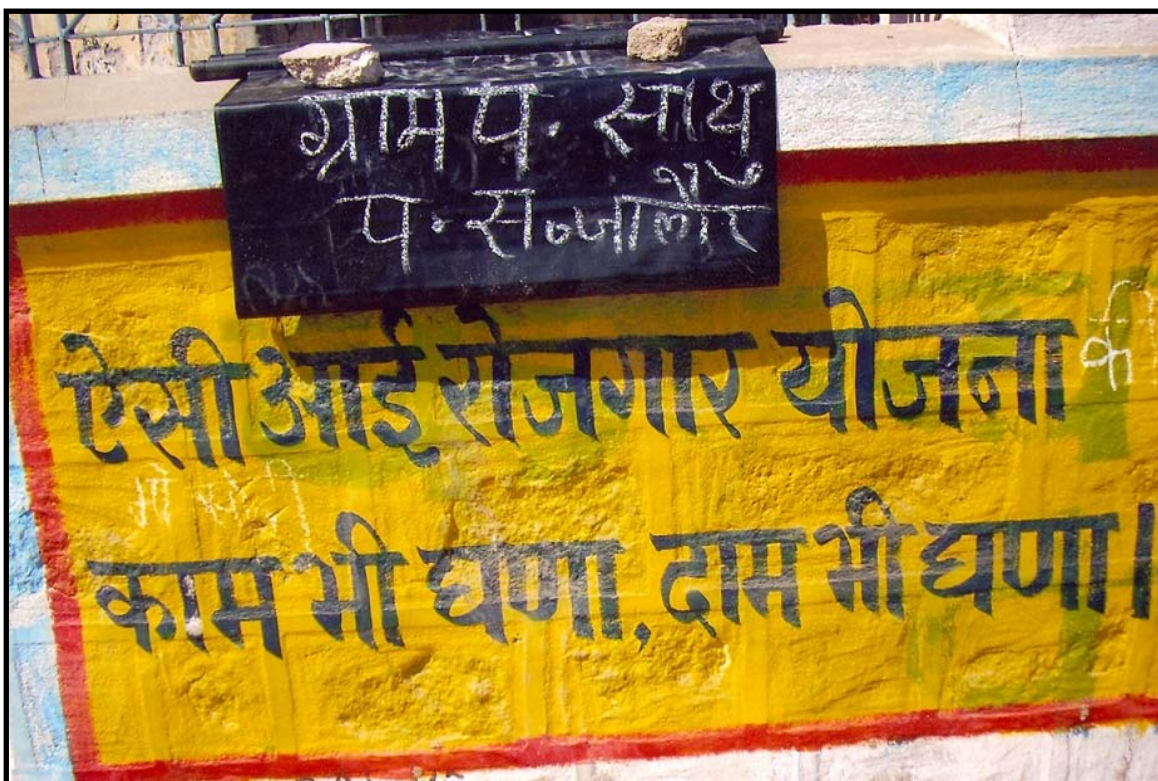 ग्राम प. साथु
प.स. जालौर
ऐसी आई रोजगार योजना
की
काम भी घणा, दाम भी घणा।